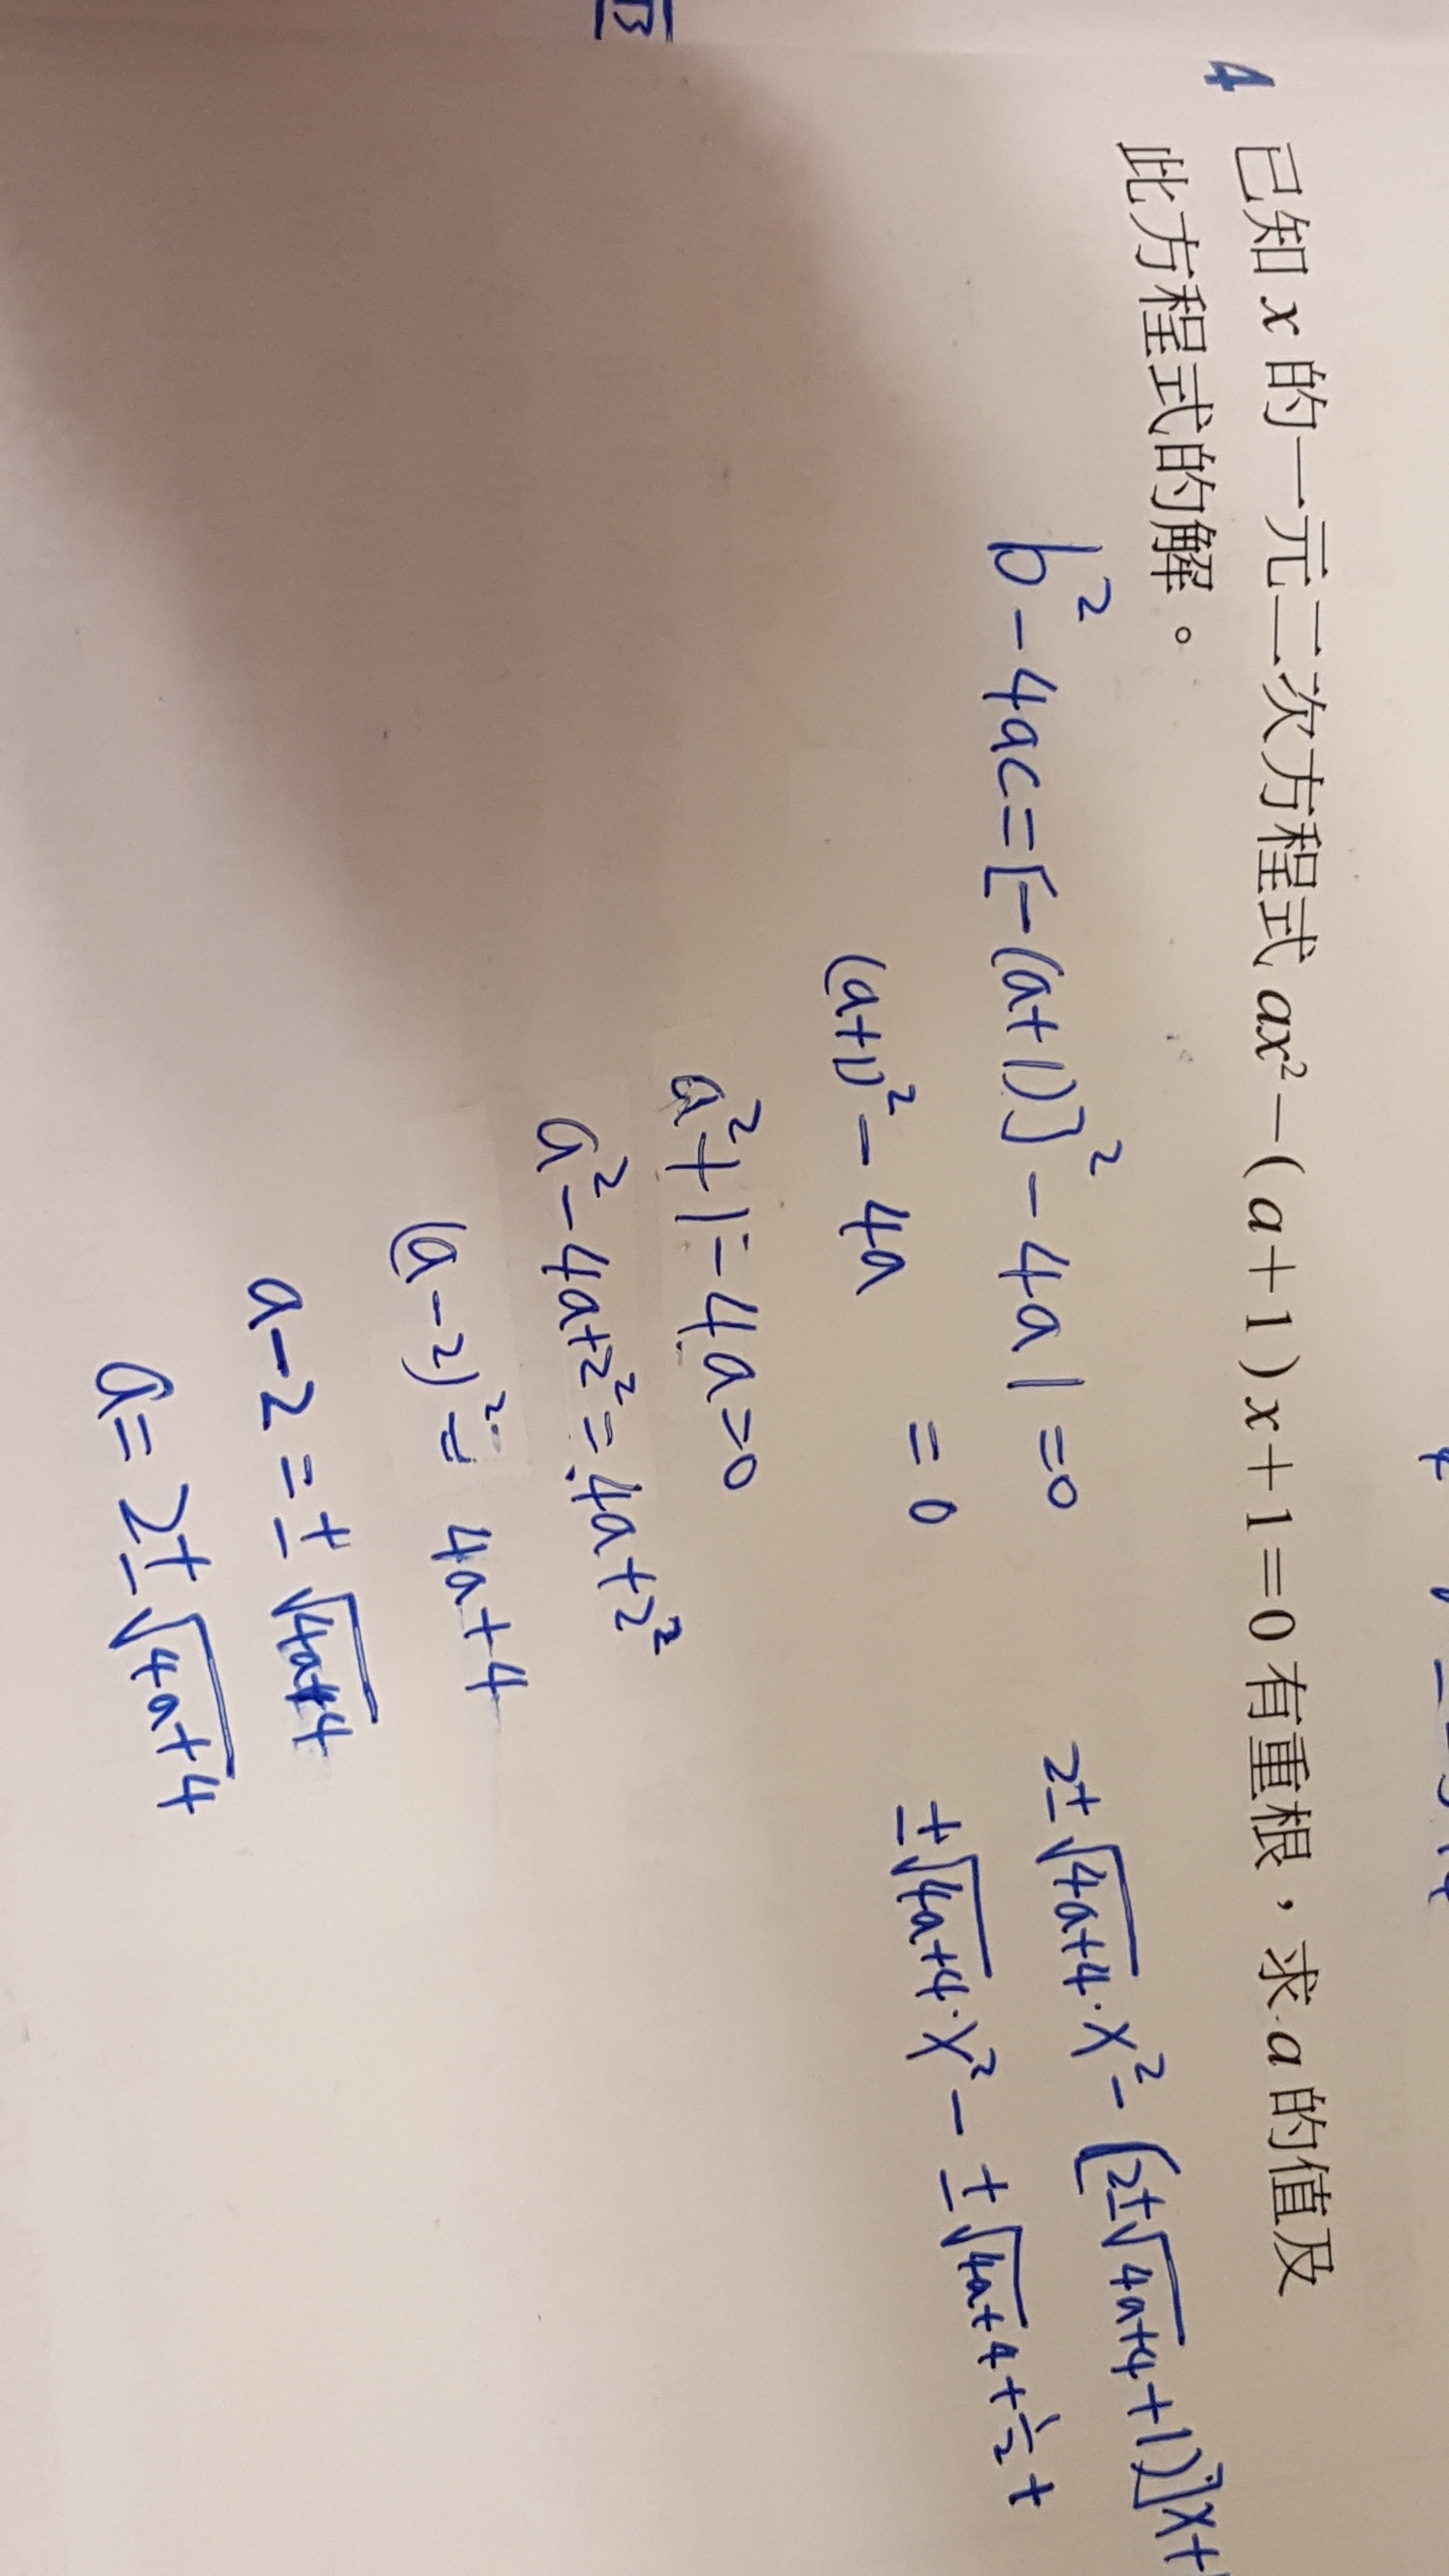 4 已知 x 的一元二次方程式 ax²－(a＋1)x＋1＝0 有重根，求 a 的值及
此方程式的解。
b²－4ac=[－(a+1)]²－4a1=0
(a+1)²－4a =0
a²+1－4a=0
a²－4a+2²=4a+2²
(a－2)²=4a+4
a－2=±√4a+4
a=2±√4a+4
2±√4a+4·x²－[2±√4a+4+1)]x+
±√4a+4·x²－±√4a+4+½+